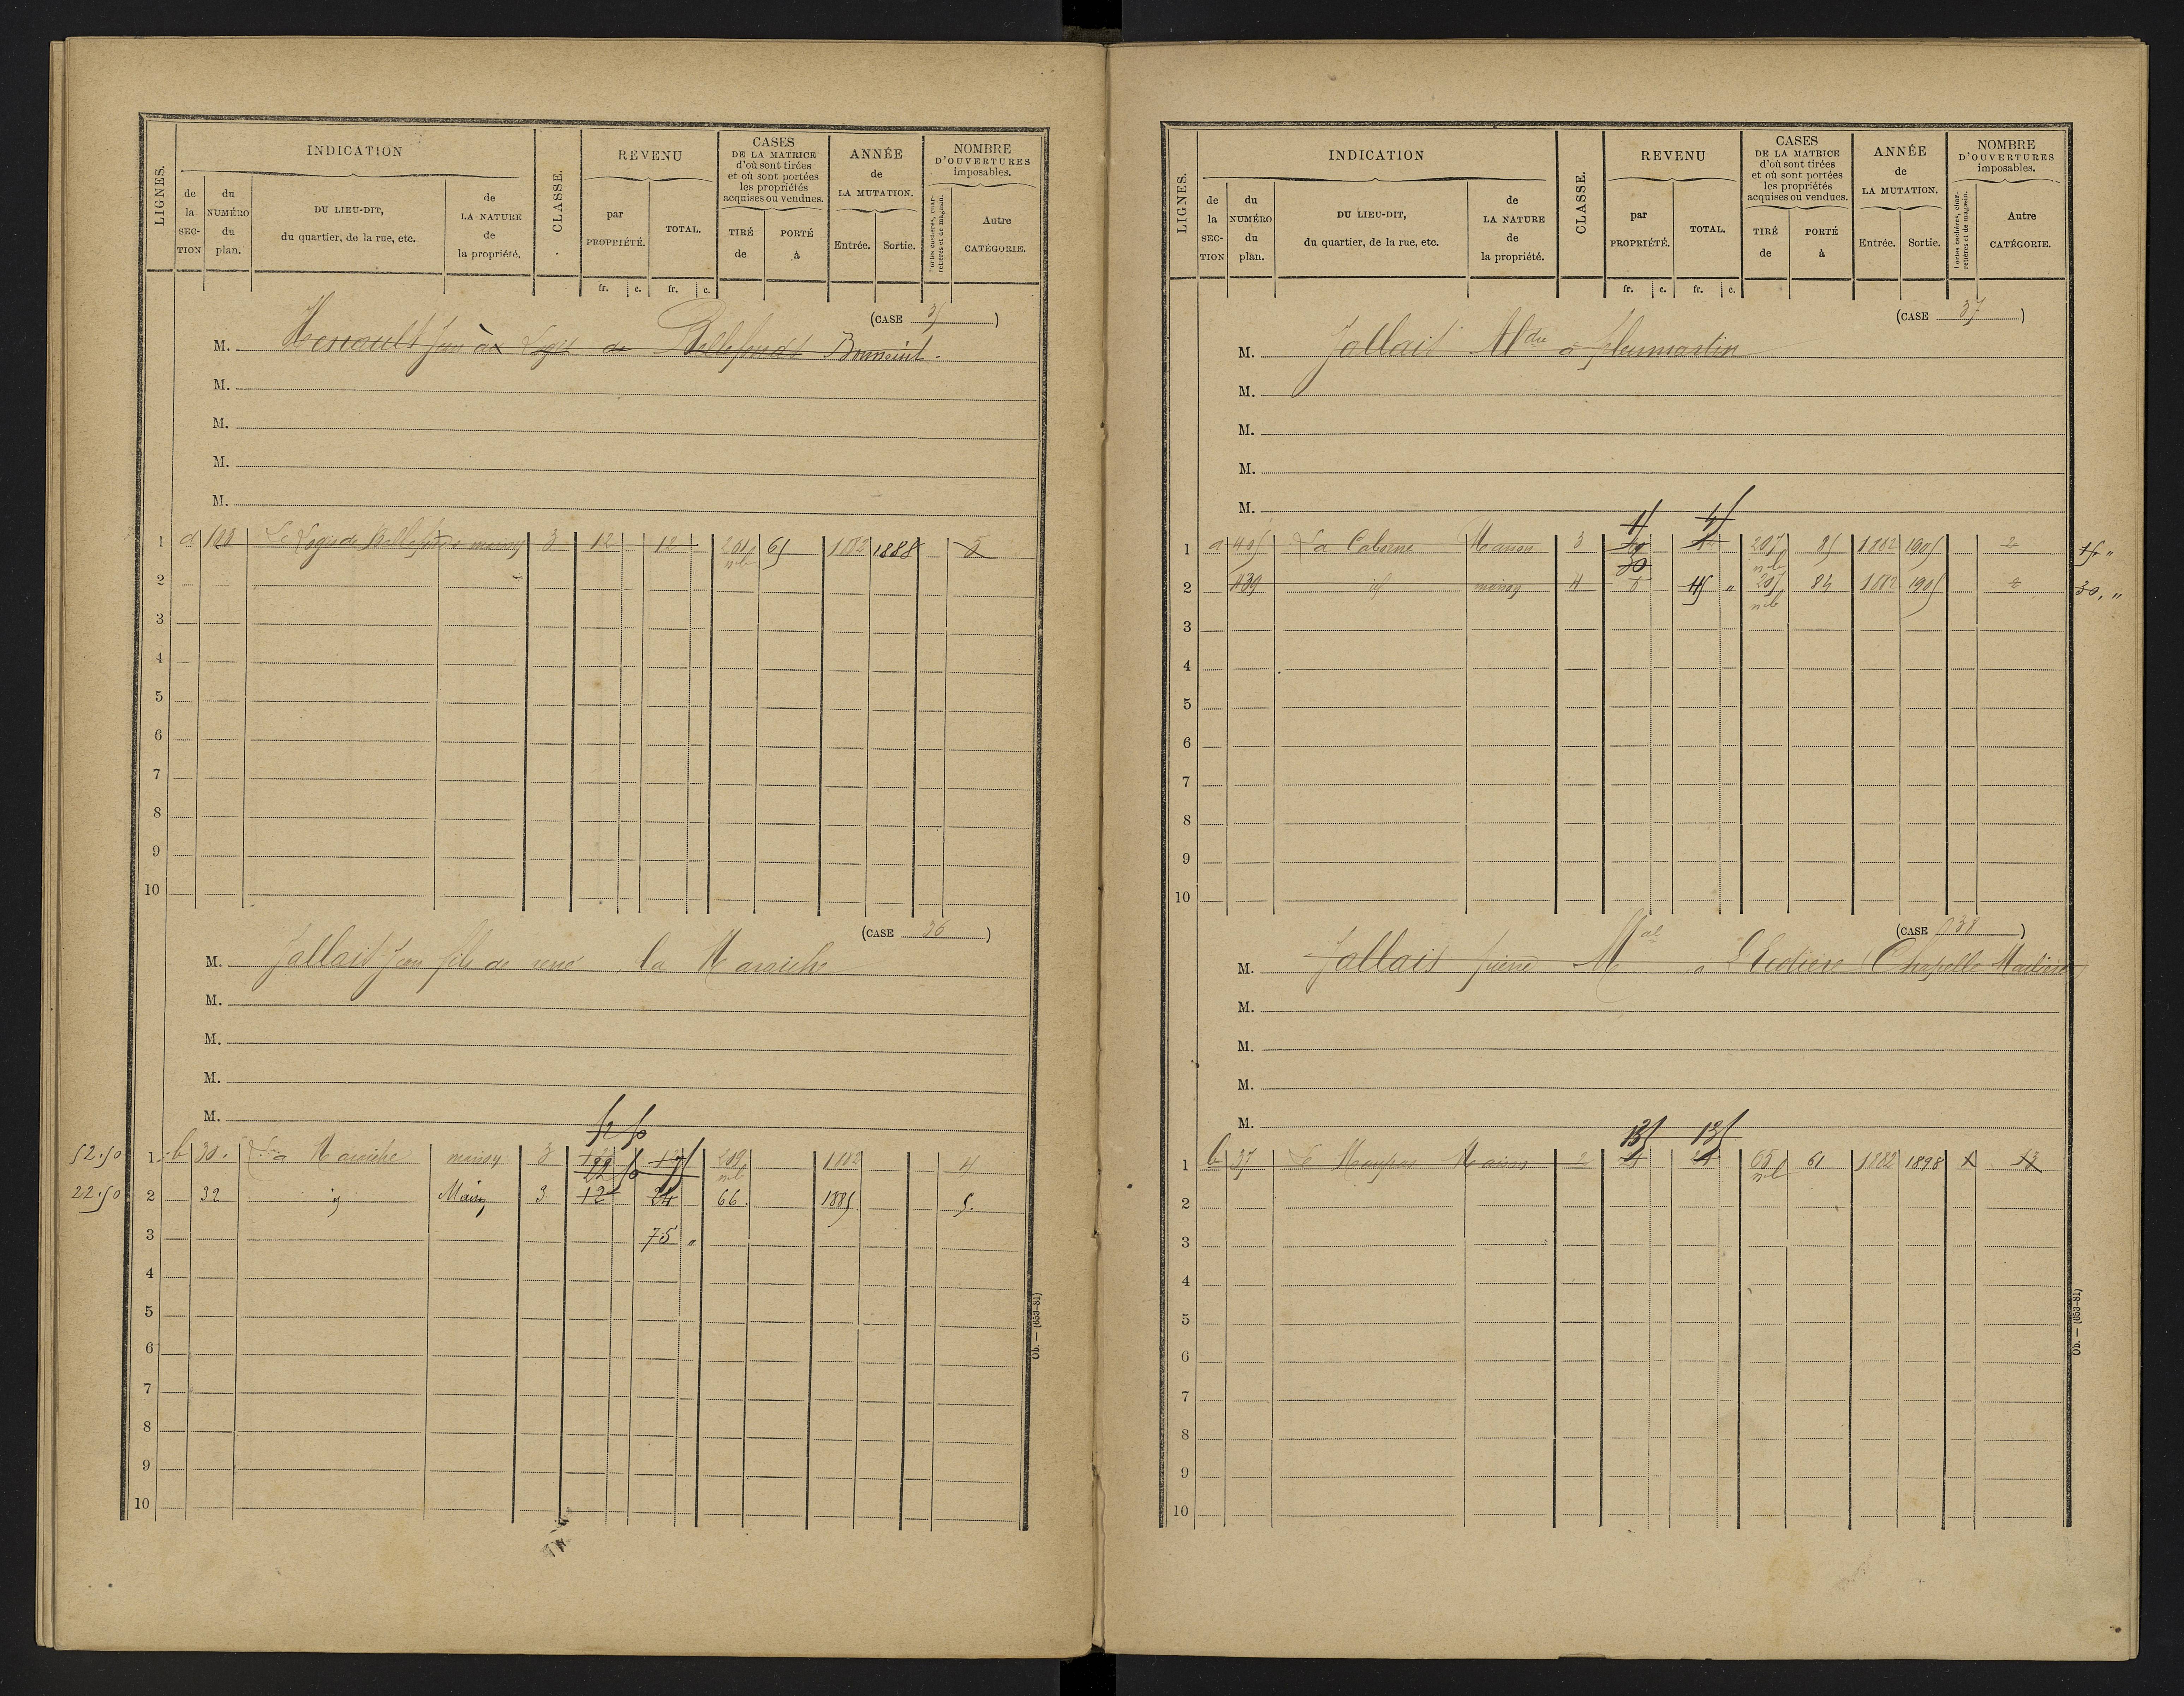 LIGNES.
INDICATION
de la SECTION
du NUMÉRO du plan.
DU LIEU-DIT, du quartier, de la rue, etc.
de LA NATURE de la propriété.
CLASSE.
REVENU
par PROPRIÉTÉ.
TOTAL.
CASES DE LA MATRICE d'où sont tirées et où sont portées les propriétés acquises ou vendues.
TIRÉ de
PORTÉ à
ANNÉE de LA MUTATION.
Entrée.
Sortie.
NOMBRE D'OUVERTURES imposables.
Portes cochères, charretières et de magasin.
Autre CATÉGORIE.
fr. c. fr. c.
(CASE 35)
M. Jean à Logis de Bellefonds Bonneuil
M.
M.
M.
M.
1 d Le Logis de Bellefonds maison 3 12 12 61 1882 1888 5
2
3
4
5
6
7
8
9
10
(CASE 36)
M. Jallais Jean fils de rené la Maraiche
M.
M.
M.
M.
52 50
52.50 1 b 30. La Maraiche maison 3 209 1882 4
22 50
22.50 2 32 id Maison 3 12 24 66. 1885. 5.
3 75 "
4
5
6
7
8
9
10
Ob. — (653-81)
LIGNES.
INDICATION
de la SECTION
du NUMÉRO du plan.
DU LIEU-DIT, du quartier, de la rue, etc.
de LA NATURE de la propriété.
CLASSE.
REVENU
par PROPRIÉTÉ.
TOTAL.
CASES DE LA MATRICE d'où sont tirées et où sont portées les propriétés acquises ou vendues.
TIRÉ de
PORTÉ à
ANNÉE de LA MUTATION.
Entrée.
Sortie.
NOMBRE D'OUVERTURES imposables.
Portes cochères, charretières et de magasin.
Autre CATÉGORIE.
fr. c. fr. c.
(CASE 37)
M. Jallais à Pleumartin
M.
M.
M.
M.
1 a 405 La Maison 3 207 85 1882 1905 2 15 "
30
2 439 id maison 4 45 " 207 84 1882 1905 2 30, "
3
4
5
6
7
8
9
10
(CASE 38)
M. Jallais pierre Mal à Chapelle
M.
M.
M.
M.
135 135
1 b 37 Le Maupas Maison 2 61 1882 1898 1 13
2
3
4
5
6
7
8
9
10
Ob. — (653-81)